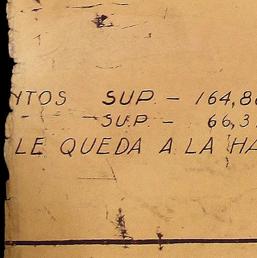 NTOS SUP. - 164,86
- SUP. - 66,3
LE QUEDA A LA HA